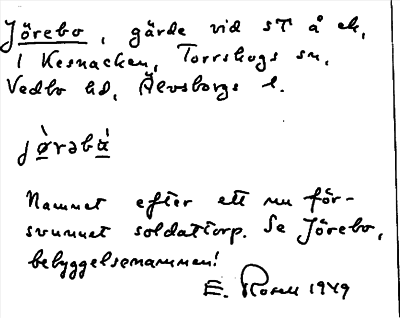 Jörebo, gärde vid ST å ek,
i Kesnacken, Torrskogs sn,
Vedbo hd, Älvsborgs l.
jø̀rəbú
Namnet efter ett nu för-
svunnet soldattorp. Se Jörebo,
bebyggelsenamnen!
E. Rosell 1949